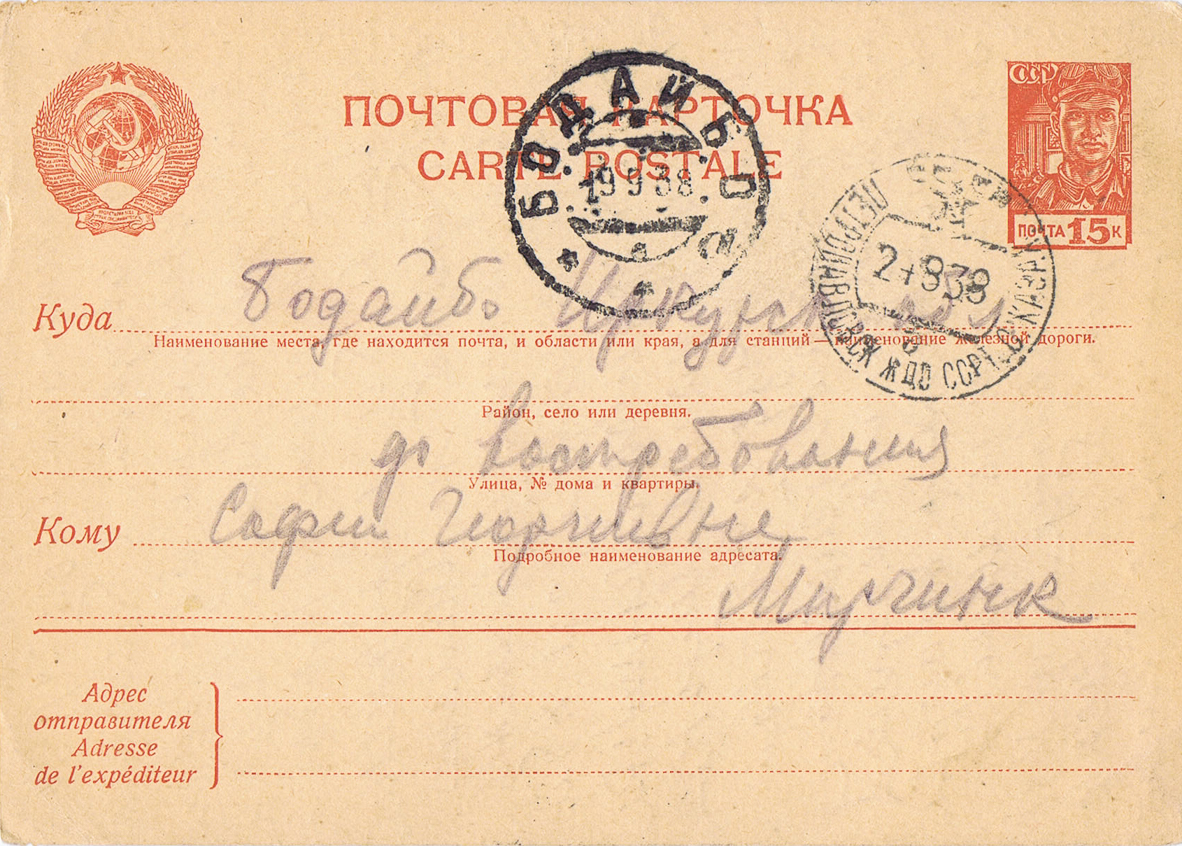 ПОЧТОВАЯ КАРТОЧКА
CARTE POSTALE
СССР
ПОЧТА 15 К
БОДАЙБО
9 38
ПЕТРОЗАВОДСК ЖДО
2 8 38
Куда Бодайбо Иркутск обл
Наименование места, где находится почта, и области или края, а для станций — наименование железной дороги.
Район, село или деревня.
до востребования
Улица, № дома и квартиры.
Кому Софии Георгиевне
Подробное наименование адресата.
Мирчинк
Адрес
отправителя
Adresse
de l'expéditeur